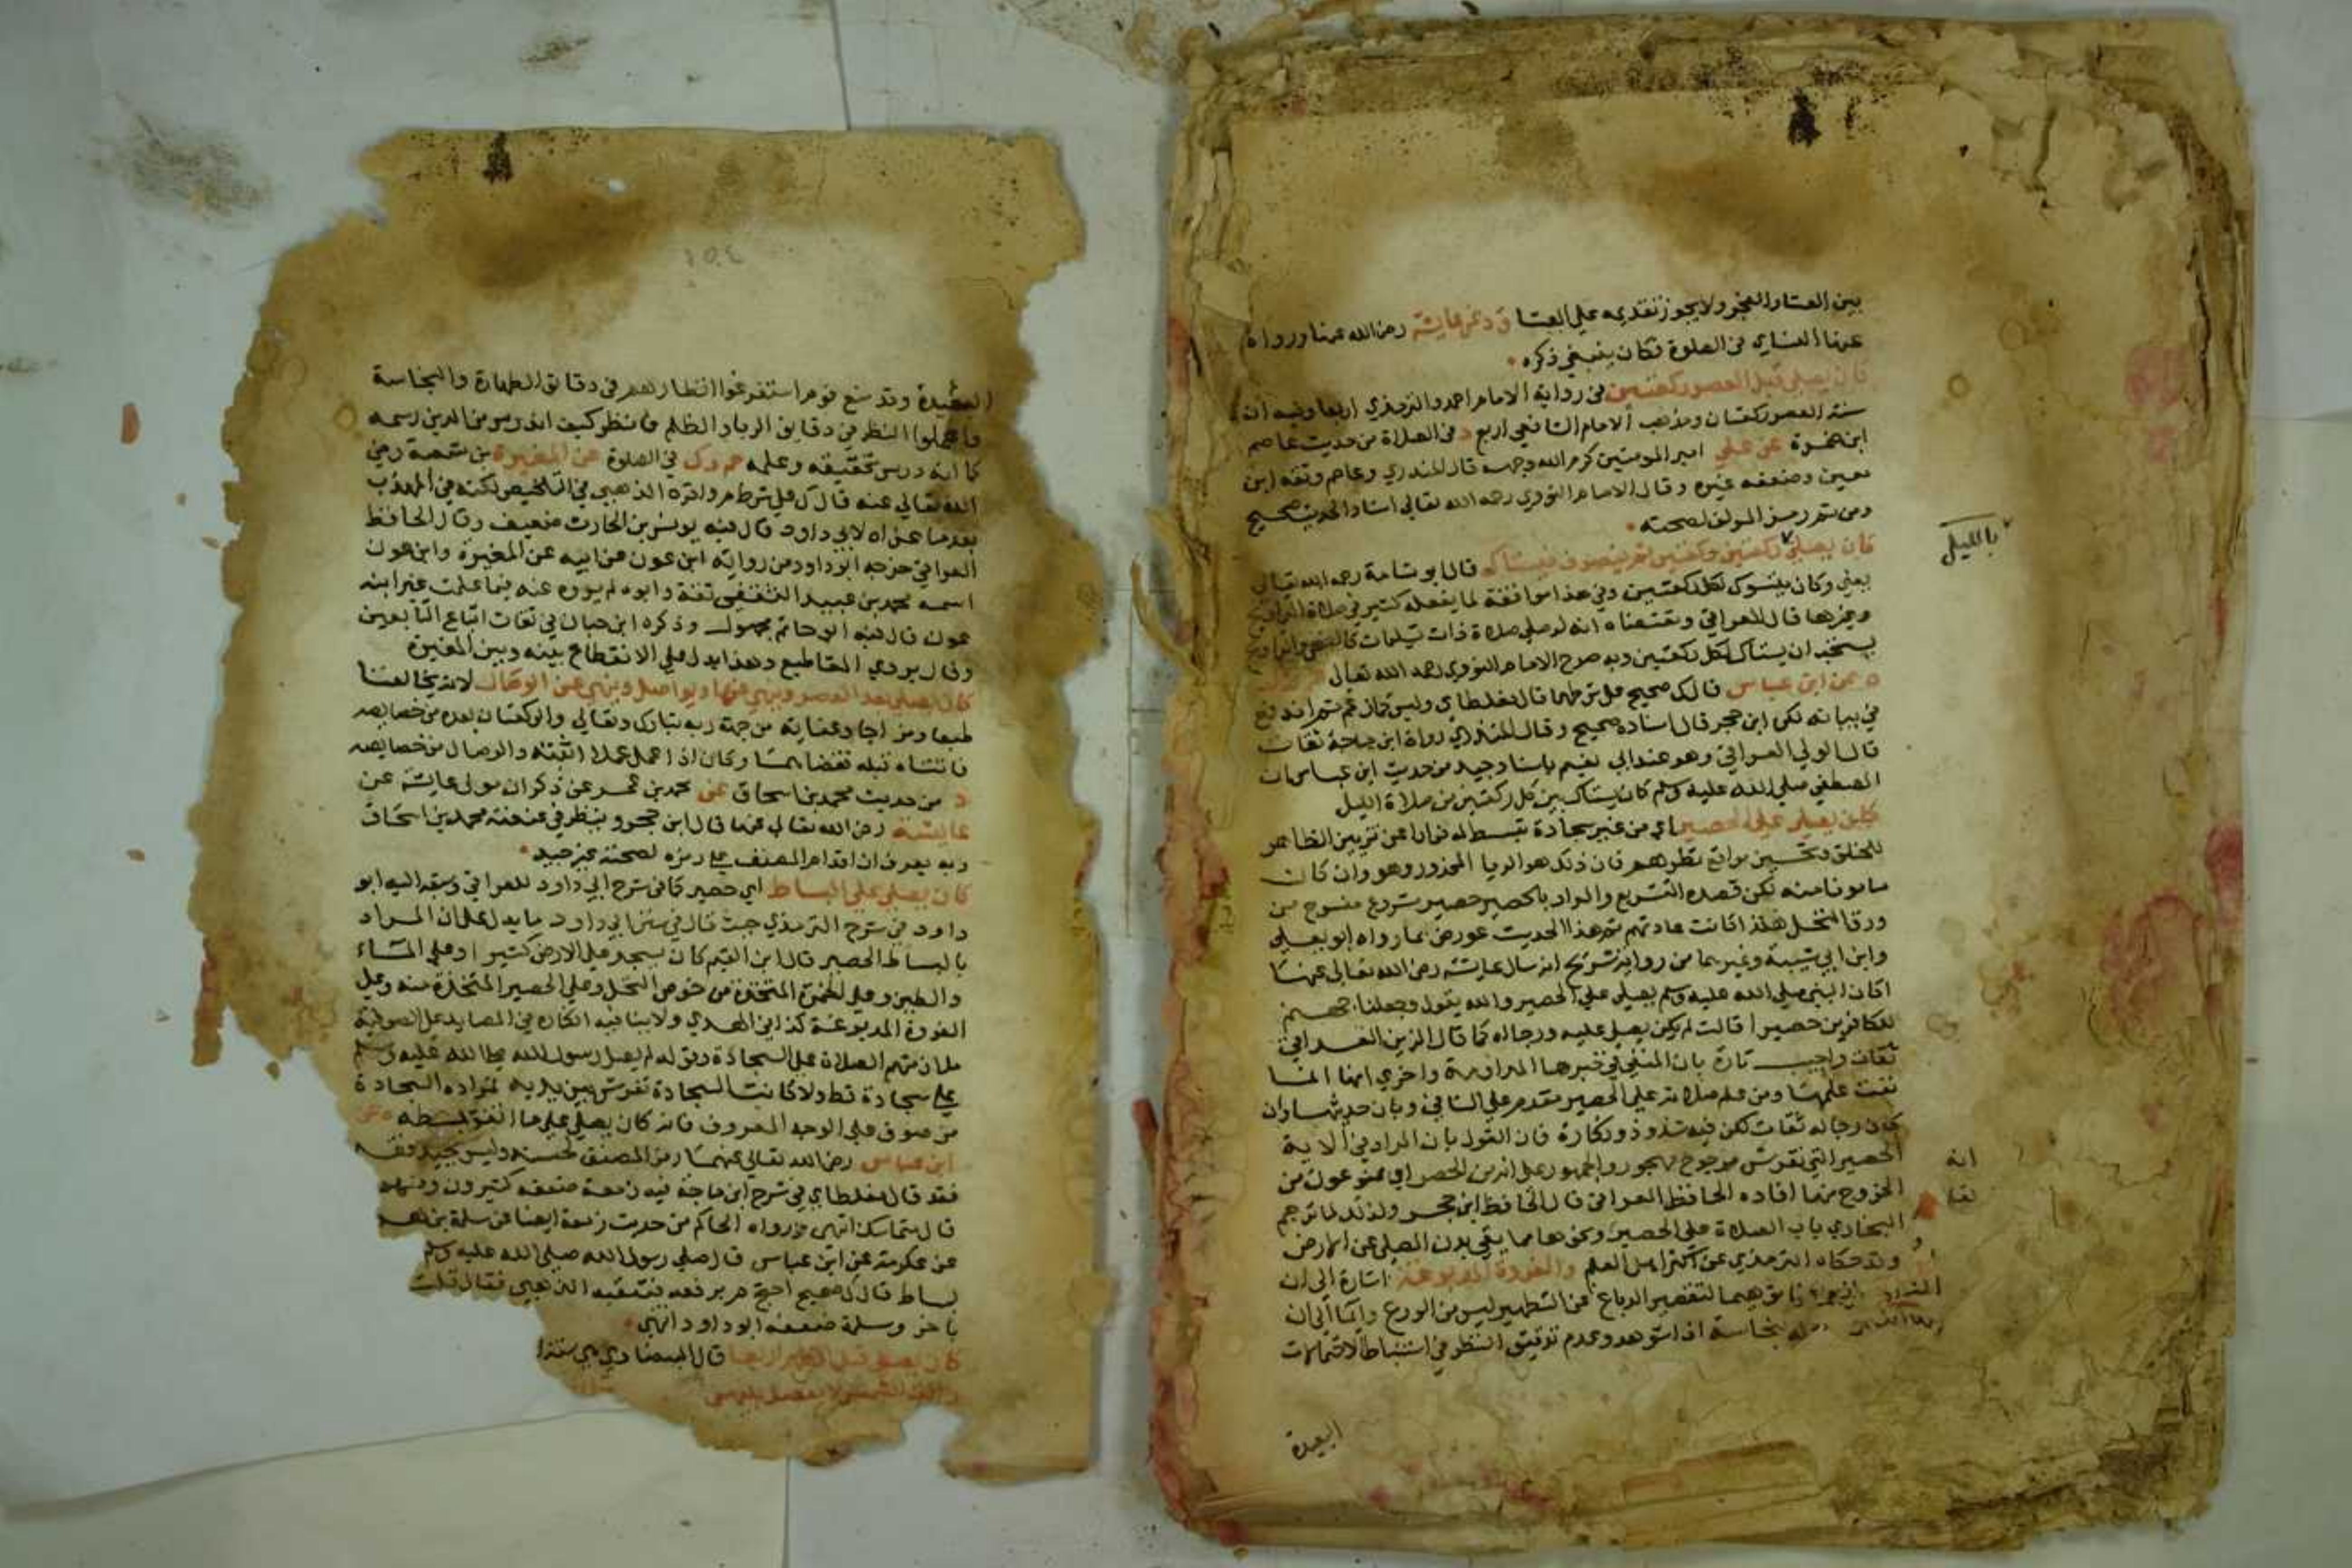 بين العشا والفجر ولا يجوز تقديمه على العشا ق د عن عايشة رضي الله عنها ورواه
عنها النساي في الصلوة فكان ينبغي ذكره
كان يصلي قبل العصر ركعتين في رواية الامام احمد والترمذي اربعا وفيه ان
سنة العصر ركعتان ومذهب الامام الشافعي اربع د في الصلاة من حديث عاصم
ابن ضمرة عن علي امير المومنين كرم الله وجهه قال المنذري وعاصم وثقه ابن
معين وضعفه غيره وقال الامام النووي رحمه الله تعالى اسناد الحديث صحيح
ومن ثم رمز المولف لصحته
كان يصلي ركعتين ركعتين ثم ينصرف فيستاك قال ابو شامة رحمه الله تعالى
بالليل
يعني وكان يتسوك لكل ركعتين وفي هذا موافقة لما يفعله كثير في صلاة التراويح
وغيرها قال العراقي ومقتضاه انه لو صلى صلاة ذات تسليمات كالضحى والتراويح
يستحب ان يستاك لكل ركعتين وبه صرح الامام النووي رحمه الله تعالى
ه عن ابن عباس قال ك صحيح على شرطهما قال مغلطاي وليس كما زعم ثم اندفع
في بيانه لكن ابن حجر قال اسناده صحيح وقال المنذري رواة ابن ماجة ثقات
قال الولي العراقي وهو عند ابي نعيم باسناد جيد من حديث ابن عباس ان
المصطفى صلى الله عليه وسلم كان يستاك بين كل ركعتين من صلاة الليل
كان يصلي على الحصير اي من غير سجادة تبسط له فرارا عن تزيين الظاهر
للخلق وتحسين مواقع نظرهم فان ذلك هو الريا المحذور وهو وان كان
مامونا منه لكن قصده التشريع والمراد بالحصير حصير منسوج من
ورق النخل هكذا كانت عادتهم ثم هذا الحديث عورض بما رواه ابو يعلى
وابن ابي شيبة وغيرهما من رواية شريح انه سال عايشة رضي الله تعالى عنها
اكان النبي صلى الله عليه وسلم يصلي على الحصير والله يقول وجعلنا جهنم
للكافرين حصيرا قالت لم يكن يصلي عليه ورجاله كما قال الزين العراقي
ثقات واجيب تارة بان المنفي في خبرها المداومة واخرى انها انما
نفت علمها ومن علم صلاته على الحصير مقدم على النافي وبان حديثها وان
كان رجاله ثقات لكن فيه شذوذ ونكارة فان القول بان المراد في الاية
الحصير التي تفرش مرجوح مهجور والجمهور على انه من الحصر اي ممنوعون من
انه
الخروج منها افاده الحافظ العراقي قال الحافظ ابن حجر ولذلك لما ترجم
البخاري باب الصلاة على الحصير ونحوها مما يقي بدن المصلي عن الارض
وقد حكاه الترمذي عن اكثر اهل العلم والفروة المدبوغة اشارة الى ان
لتقصير الدباغ عن التطهير ليس من الورع وايما الى ان
نجاسة اذا شوهد وعدم تدقيق النظر في استنباط الاحتمالات
البعيدة
البعيدة وقد منع قوم استفرغوا انظارهم في دقايق الطهارة والنجاسة
واهملوا النظر في دقايق الريا والظلم فانظر كيف اندرس من الدين رسمه
كما اندرس تحقيقه وعلمه حم د ك في الصلوة عن المغيرة بن شعبة رضي
الله تعالى عنه قال ك على شرط م واقره الذهبي في التلخيص لكنه في المهذب
بعد ما عزاه لابي داود قال فيه يونس بن الحارث ضعيف وقال الحافظ
العراقي خرجه ابو داود من رواية ابن عون عن ابيه عن المغيرة وابن عون
اسمه محمد بن عبيد الله الثقفي ثقة وابوه لم يروه عنه فيما علمت غير ابنه
عون قال فيه ابو حاتم مجهول وذكره ابن حبان في ثقات اتباع التابعين
وقال يروي المقاطيع وهذا يدل على الانقطاع بينه وبين المغيرة
كان يصلي بعد العصر وينهى عنها ويواصل وينهى عن الوصال لانه يخالفنا
طبعا ومزاجا وعناية من جهة ربه تبارك وتعالى والركعتان بعده من خصايصه
فاتتاه قبله فقضاهما وكان اذا عمل عملا اثبته والوصال من خصايصه
د من حديث محمد بن اسحاق عن محمد بن عمرو عن ذكوان مولى عايشة عن
عايشة رضي الله تعالى عنها قال ابن حجر وينظر في عنعنة محمد بن اسحاق
وبه يعرف ان اقدام المصنف على رمزه لصحته غير جيد
كان يصلي على البساط اي حصير كما في شرح ابي داود للعراقي وسبقه اليه ابو
داود في شرح الترمذي حيث قال في سنن ابي داود ما يدل على ان المراد
بالبساط الحصير قال ابن القيم كان يسجد على الارض كثيرا وعلى الماء
والطين وعلى الخمرة المتخذة من خوص النخل وعلى الحصير المتخذة منه وعلى
الفروة المدبوغة كذا في الهدي ولا ينافيه انكاره في المصايد على الصوفية
ملازمتهم الصلاة على السجادة وقوله لم يصل رسول الله صلى الله عليه وسلم
على سجادة قط ولا كانت السجادة تفرش بين يديه لمراده السجادة
من صوف على الوجه المعروف فانه كان يصلي على ما اتفق بسطه ه عن
ابن عباس رضي الله تعالى عنهما رمز المصنف لحسنه وليس بجيد
فقد قال مغلطاي في شرح ابن ماجة فيه زمعة ضعفه كثيرون ومنهم
قال متماسك انتهى ورواه الحاكم من حديث زمعة ايضا عن سلمة بن وهرام
عن عكرمة عن ابن عباس قال صلى رسول الله صلى الله عليه وسلم
بساط قال ك صحيح احتج م بزمعة فتعقبه الذهبي فقال قلت
باخر وسلمة ضعفه ابو داود انتهى
كان يصلي قبل الظهر اربعا قال البيضاوي هي سنة
زالت الشمس لا يفصل بينهن